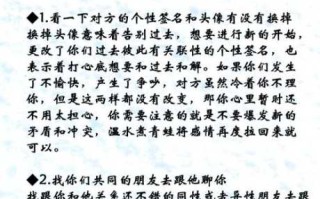 ◆1.看一下对方的个性签名和头像有没有换掉
换掉头像意味着告别过去，想要进行新的开始，
更改了你们过去彼此有关联性的个性签名，也
表示着打心底想要和过去和解。如果你们发生
了不愉快，产生了争吵，对方虽然冷着你不理
你，但是这两样都没有改变，那你心里暂时还
不用太担心，你需要注意的就是不要爆发新的
矛盾和冲突，温水煮青蛙将感情再度拉回来就
可以。
◆2.找你们共同的朋友去跟他聊你
找跟你和他关系还不错的同性或者异性朋友去跟